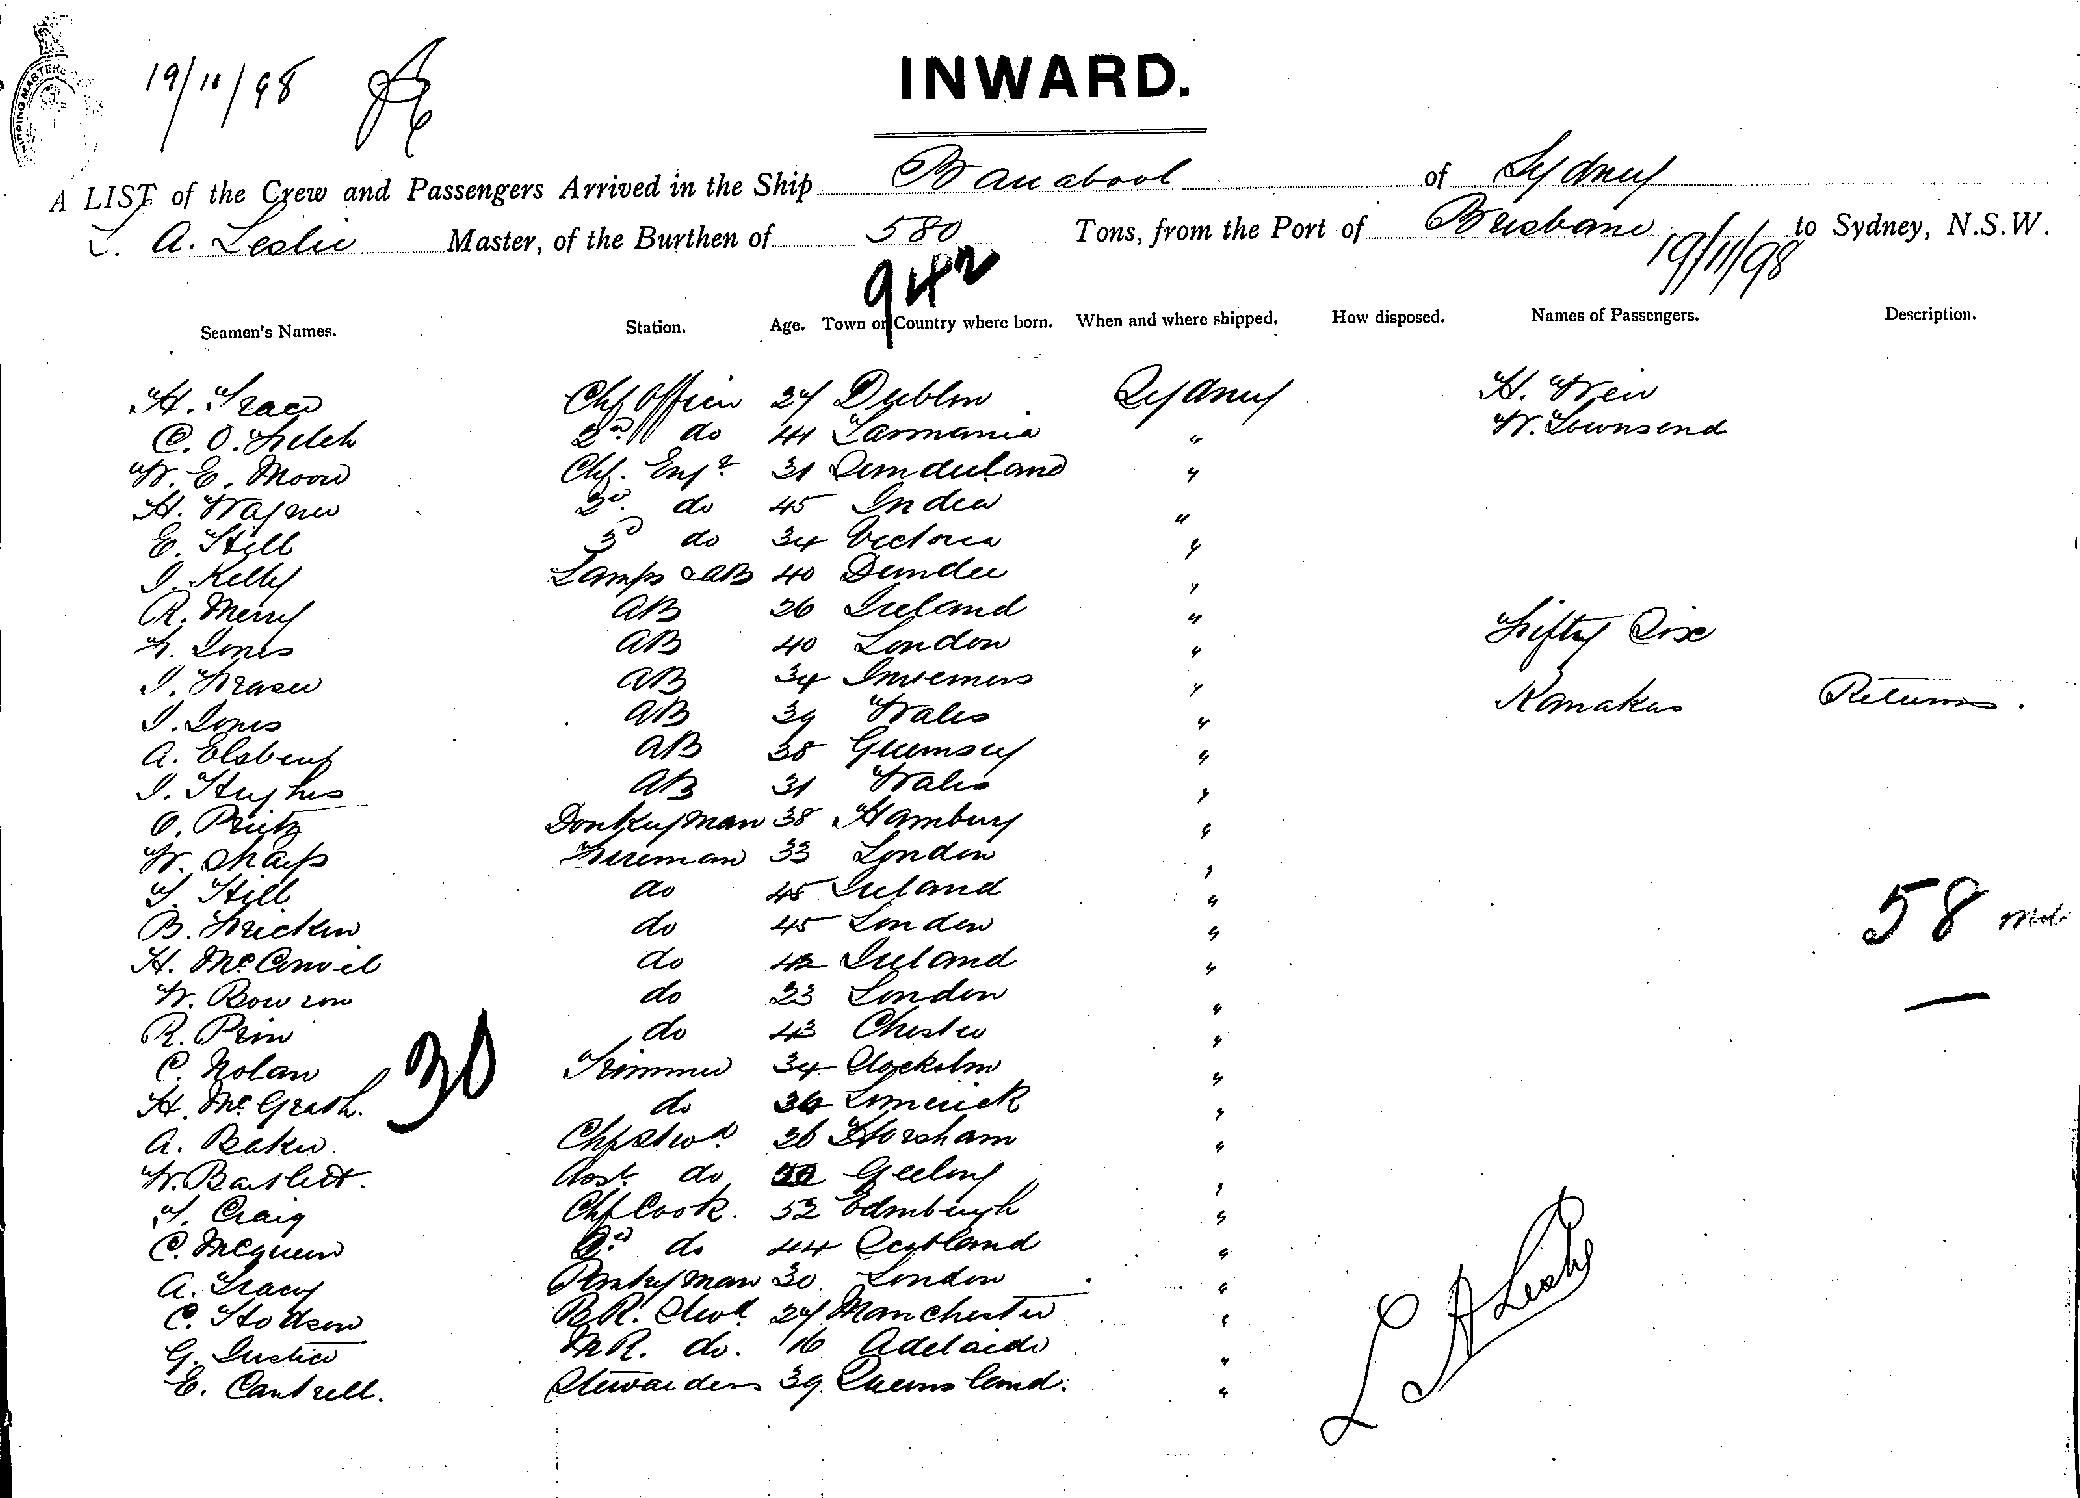 19/11/98
INWARD.
A LIST of the Crew and Passengers Arrived in the Ship Barrabool of Sydney
L. A. Leslie Master, of the Burthen of 580 Tons, from the Port of Brisbane to Sydney, N.S.W.
942 19/11/98
Seamen's Names. Station. Age. Town or Country where born. When and where shipped. How disposed. Names of Passengers. Description.
H. Chf Officer 27 Dublin Sydney H. Weir
C. O. 2nd do 41 Tasmania " W. Townsend
W. E. Moore Chf. Engr 31 Sunderland "
H. Wagner 2d do 45 India "
E. Still 3d do 34 Victoria "
J. Kelly Lamps & AB 40 Dundee "
R. Merry AB 26 Ireland " Fifty Six
F. Jones AB 40 London "
J. Fraser AB 34 Inverness " Kanakas Returns.
J. Jones AB 39 Wales "
A. AB 38 Guernsey "
J. Hughes AB 31 Wales "
O. Donkeyman 38 Hamburg "
W. Sharp Fireman 33 London "
T. Hill do 45 Ireland " 58
B. do 45 London "
H. do 42 Ireland "
W. Bowron do 23 London "
R. do 43 Chester "
C. Nolan 30 Trimmer 34 Stockolm "
H. McGrath. do 36 Limerick "
A. Baker. Chf Stwd 26 Horsham "
W. Bartlett. Asst do Geelong "
T. Craig Chf Cook. 52 Edinburgh "
C. McQueen 2d do 44 Scotland "
A. Tracy Pantryman 30 London "
C. Hodson B.R. Stwd 27 Manchester "
G. Justice M R. do. 16 Adelaide "
E. Cantrell. Stewardess 39 Queensland. "
L A Leslie